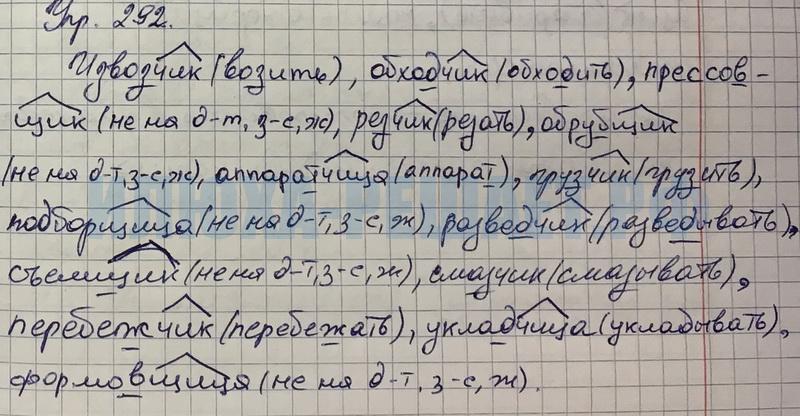 Упр. 292.
Изводчик (возить), обходчик (обходить), прессов-
щик (не на д-т, з-с, ж), резчик (резать), обрубщик
(не на д-т, з-с, ж), аппаратчица (аппарат), грузчик (грузить),
подборщица (не на д-т, з-с, ж), разведчик (разведывать),
съемщик (не на д-т, з-с, ж), смазчик (смазывать),
перебежчик (перебежать), укладчица (укладывать),
формовщица (не на д-т, з-с, ж).